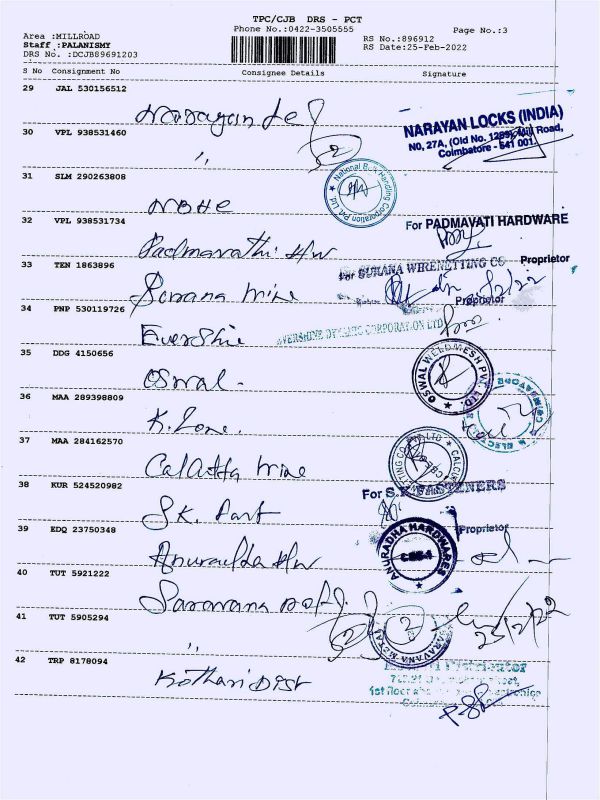 TPC/CJB DRS - PCT
Phone No.:0422-3505555
Page No.:3
Area :MILLROAD
Staff :PALANISMY
DRS No. :DCJB89691203
RS No.:896912
RS Date:25-Feb-2022
S No Consignment No Consignee Details Signature
29 JAL 530156512
Narayan
NARAYAN LOCKS (INDIA)
NO, 27A, (Old No. Mill Road,
Coimbatore - 641 001.
30 VPL 938531460
"
31 SLM 290263808
NBHC
National Bulk Handling Corporation Pvt. Ltd.
32 VPL 938531734
Padmavathi H/W
For PADMAVATI HARDWARE
Proprietor
33 TEN 1863896
For SURANA WIRENETTING CO
Proprietor
34 PNP 530119726
EVERSHINE CORPORATION LTD
35 DDG 4150656
Oswal
OSWAL WELDMESH PVT. LTD.
36 MAA 289398809
K. Zone.
37 MAA 284162570
38 KUR 524520982
S.K. Fast
For S.K. FASTENERS
Proprietor
39 EDQ 23750348
Anuradha H/W
ANURADHA HARDWARES
CBE-1
40 TUT 5921222
Saravana
25/2/22
41 TUT 5905294
"
SARAVANA METAL
42 TRP 8178094
Kothari Dist
1st floor